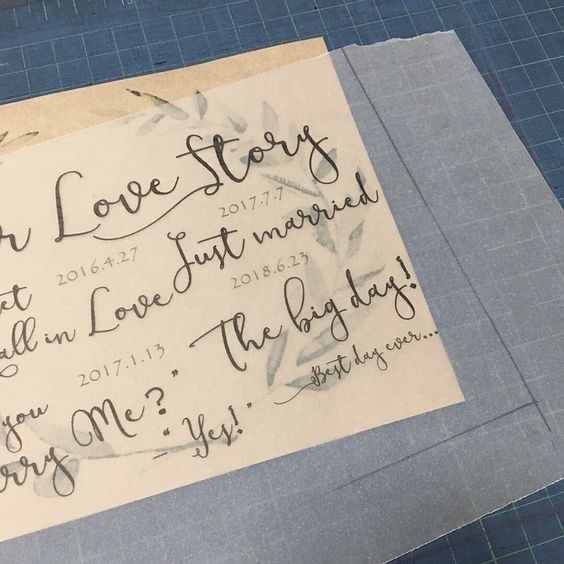 r Love Story
2016.4.27
et
all in Love
2017.1.13
you
rry Me?"
- "Yes!"
2017.7.7
Just married
2018.6.23
The big day!
Best day ever...